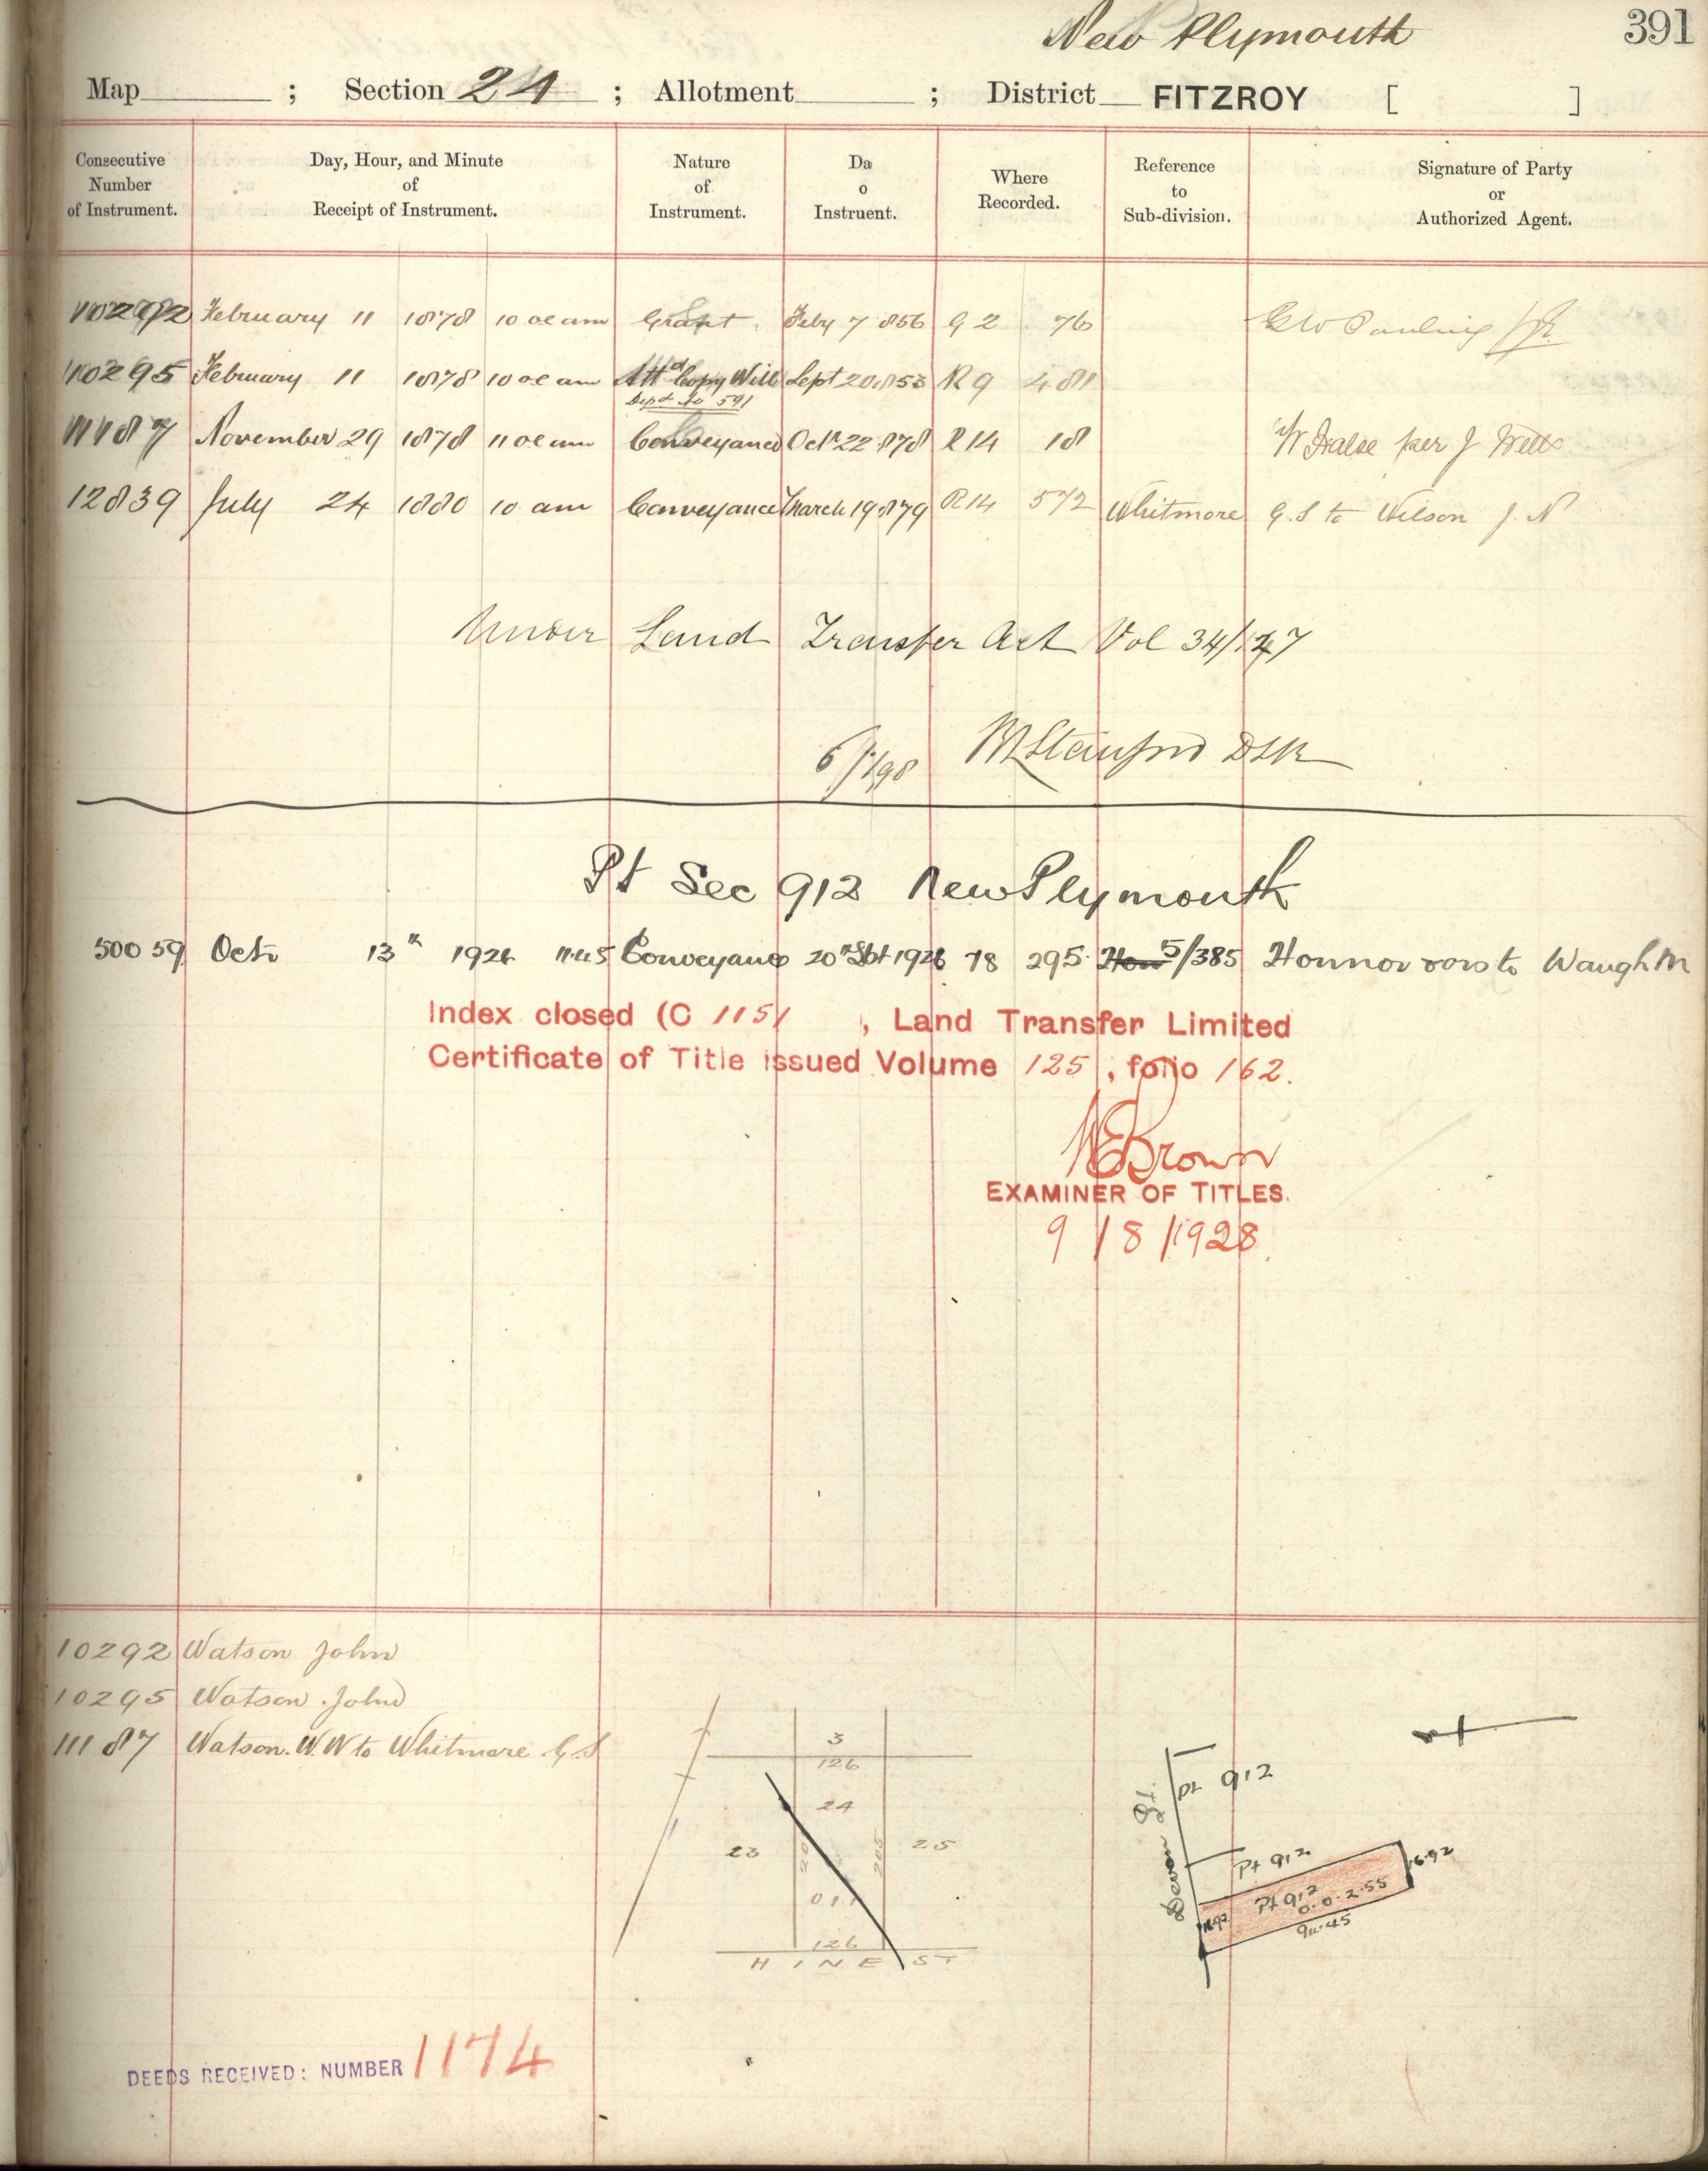 New Plymouth 391
Map ; Section 24 ; Allotment ; District FITZROY [ ]
Consecutive Number of Instrument. Day, Hour, and Minute of Receipt of Instrument. Nature of Instrument. Da o Instruent. Where Recorded. Reference to Sub-division. Signature of Party or Authorized Agent.
10292 February 11 1878 10 oc am Grant Feby 7 1856 G 2 76
10295 February 11 1878 10 oc am Attd Copy Will Sept 20 1853 R 9 481
Depd No 591
11187 November 29 1878 11 oc am Conveyance Octr 22 1878 R 14 18 W Halse per J Wells
12839 July 24 1880 10 am Conveyance March 19 1879 R14 572 Whitmore G.S to Wilson J. N
Under Land Transfer Act Vol 34/147
6/7/98 M Stanford DLR
Pt Sec 912 New Plymouth
50059 Octr 13th 1926 11.45 Conveyance 20th Sept 1926 78 295 5/385 Honnor to Waugh M
Index closed (C 1151 , Land Transfer Limited
Certificate of Title issued Volume 125 , folio 162.
Brown
EXAMINER OF TITLES.
9/8/1928.
10292 Watson John
10295 Watson John
11187 Watson W.W to Whitmore G.S
3
126
24
23 205 25
0 1
126
HINE ST
Devon St.
Pt 912
Pt 912
16.92
Pt 912
0.0.2.55
16.92
94.45
DEEDS RECEIVED: NUMBER 1174